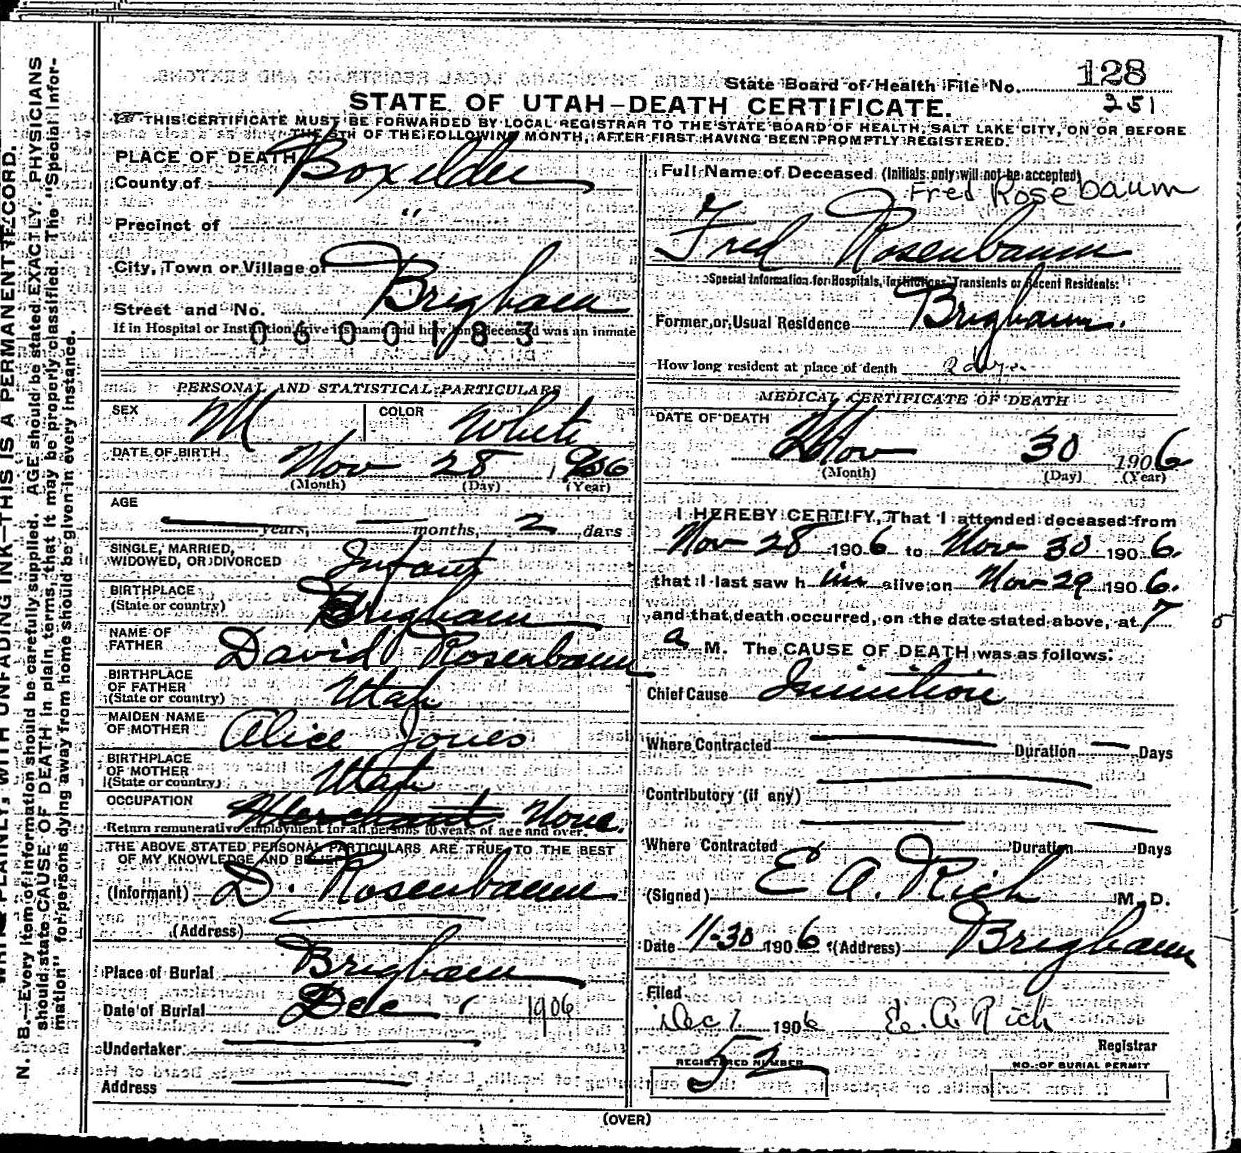 State Board of Health File No. 128
251
STATE OF UTAH—DEATH CERTIFICATE.
THIS CERTIFICATE MUST BE FORWARDED BY LOCAL REGISTRAR TO THE STATE BOARD OF HEALTH, SALT LAKE CITY, ON OR BEFORE
THE 5TH OF THE FOLLOWING MONTH, AFTER FIRST HAVING BEEN PROMPTLY REGISTERED.
PLACE OF DEATH
County of Boxelder
Precinct of "
City, Town or Village of Brigham
Street and No.
If in Hospital or Institution, give its name and how long deceased was an inmate
0600183
PERSONAL AND STATISTICAL PARTICULARS
SEX M COLOR White
DATE OF BIRTH Nov 28 1906
(Month) (Day) (Year)
AGE
years, months, 2 days
SINGLE, MARRIED,
WIDOWED, OR DIVORCED Infant
BIRTHPLACE
(State or country) Brigham
NAME OF
FATHER David Rosenbaum
BIRTHPLACE
OF FATHER
(State or country) Utah
MAIDEN NAME
OF MOTHER Alice Jones
BIRTHPLACE
OF MOTHER
(State or country) Utah
OCCUPATION Merchant None.
Return remunerative employment for all persons 10 years of age and over.
THE ABOVE STATED PERSONAL PARTICULARS ARE TRUE TO THE BEST
OF MY KNOWLEDGE AND BELIEF
(Informant) D. Rosenbaum
(Address)
Place of Burial Brigham
Date of Burial Dec 1 1906
Undertaker
Address
Full Name of Deceased (Initials only will not be accepted)
Fred Rosebaum
Fred Rosenbaum
Special Information for Hospitals, Institutions, Transients or Recent Residents:
Former or Usual Residence Brigham.
How long resident at place of death 2 days.
MEDICAL CERTIFICATE OF DEATH
DATE OF DEATH
Nov 30 1906
(Month) (Day) (Year)
I HEREBY CERTIFY, That I attended deceased from
Nov 28 1906 to Nov 30 1906.
that I last saw him alive on Nov 29 1906.
and that death occurred, on the date stated above, at 7
a M. The CAUSE OF DEATH was as follows:
Chief Cause Inanition
Where Contracted Duration Days
Contributory (if any)
Where Contracted Duration Days
(Signed) E A. Rich M. D.
Date 11-30 1906 (Address) Brigham
Filed
Dec 1 1906 E. A. Rich
Registrar
REGISTERED NUMBER
52
NO. OF BURIAL PERMIT
(OVER)
N. B.—Every item of information should be carefully supplied. AGE should be stated EXACTLY. PHYSICIANS
should state CAUSE OF DEATH in plain terms, that it may be properly classified. The "Special Infor-
mation" for persons dying away from home should be given in every instance.
PLAINLY, WITH UNFADING INK—THIS IS A PERMANENT RECORD.